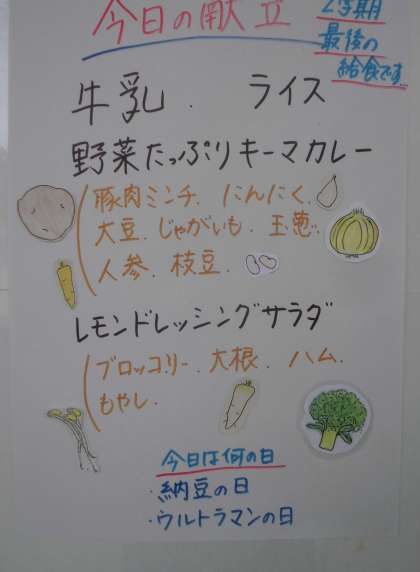 今日の献立
2学期
最後の
給食です...
牛乳. ライス
野菜たっぷりキーマカレー
豚肉ミンチ. にんにく.
大豆. じゃがいも. 玉葱.
人参. 枝豆.
レモンドレッシングサラダ
ブロッコリー. 大根. ハム.
もやし.
今日は何の日
・納豆の日
・ウルトラマンの日